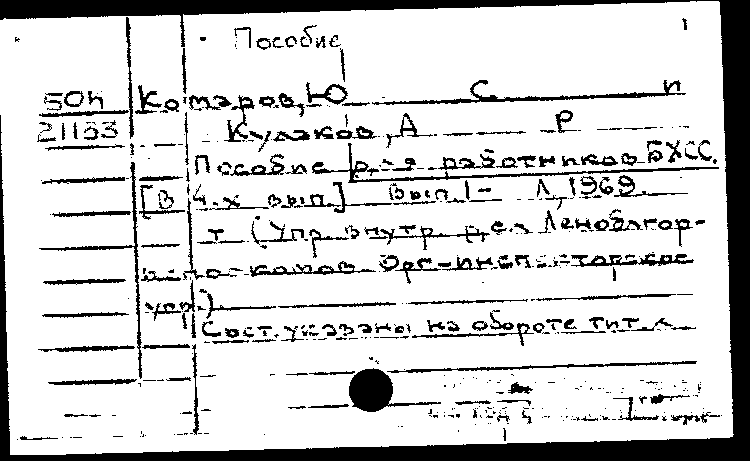 Пособие 1
50п Комаров, Ю С и
21133 Кулаков, А Р
Пособие для работников БХСС.
[В 4-х вып.] Вып. 1- Л, 1969.
т (Упр. внутр. дел Леноблгор-
исполкомов Орг-инспекторское
упр.)
Сост. указаны на обороте тит. л.